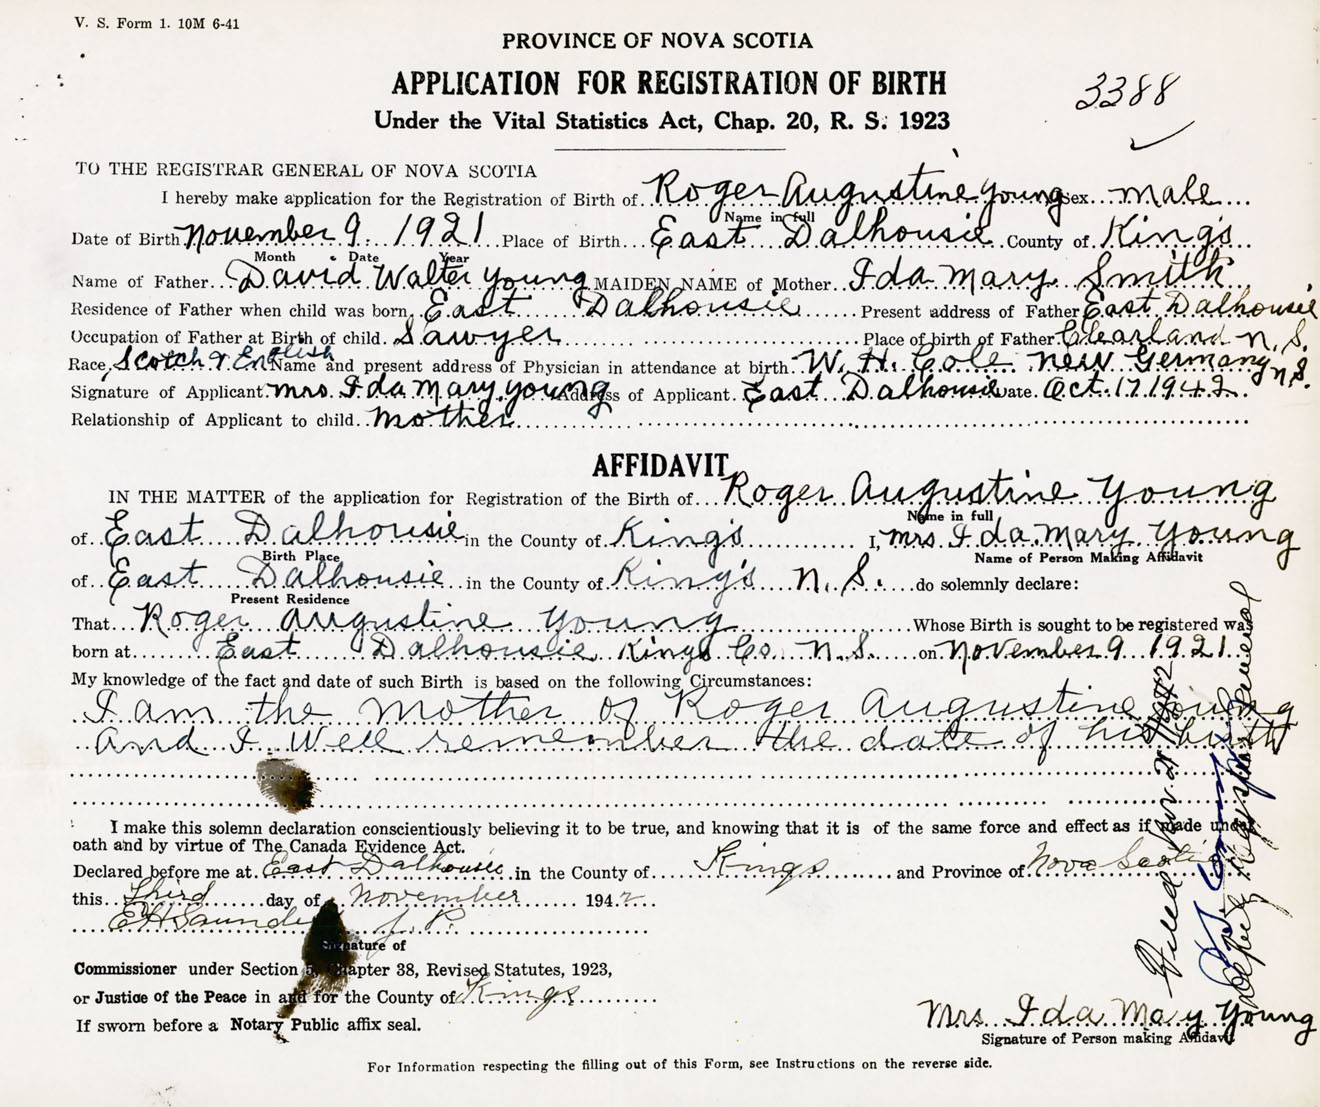 V. S. Form 1. 10M 6-41
PROVINCE OF NOVA SCOTIA
APPLICATION FOR REGISTRATION OF BIRTH
3388
Under the Vital Statistics Act, Chap. 20, R. S. 1923
TO THE REGISTRAR GENERAL OF NOVA SCOTIA
I hereby make application for the Registration of Birth of Roger Augustine Young Sex Male
Name in full
Date of Birth November 9 1921 Place of Birth East Dalhousie County of King's
Month Date Year
Name of Father David Walter Young MAIDEN NAME of Mother Ida Mary Smith
Residence of Father when child was born East Dalhousie Present address of Father East Dalhousie
Occupation of Father at Birth of child Sawyer Place of birth of Father Clearland N. S.
Race Scotch & English Name and present address of Physician in attendance at birth W. H. Cole New Germany N.S.
Signature of Applicant Mrs. Ida Mary Young Address of Applicant East Dalhousie Date Oct. 17 1942
Relationship of Applicant to child Mother
AFFIDAVIT
IN THE MATTER of the application for Registration of the Birth of Roger Augustine Young
Name in full
of East Dalhousie in the County of King's I, Mrs. Ida Mary Young
Birth Place Name of Person Making Affidavit
of East Dalhousie in the County of King's N. S. do solemnly declare:
Present Residence
That Roger Augustine Young Whose Birth is sought to be registered was
born at East Dalhousie Kings Co. N. S. on November 9 1921
My knowledge of the fact and date of such Birth is based on the following Circumstances:
I am the Mother of Roger Augustine Young
and I Well remember the date of his birth
I make this solemn declaration conscientiously believing it to be true, and knowing that it is of the same force and effect as if made under
oath and by virtue of The Canada Evidence Act.
Declared before me at East Dalhousie in the County of Kings and Province of Nova Scotia
this Third day of November 1942
E H Saunders J. P.
Signature of
Commissioner under Section 5, Chapter 38, Revised Statutes, 1923,
or Justice of the Peace in and for the County of Kings
If sworn before a Notary Public affix seal.
Mrs. Ida Mary Young
Signature of Person making Affidavit
For Information respecting the filling out of this Form, see Instructions on the reverse side.
Filed Nov 21 1942
Deputy Registrar General